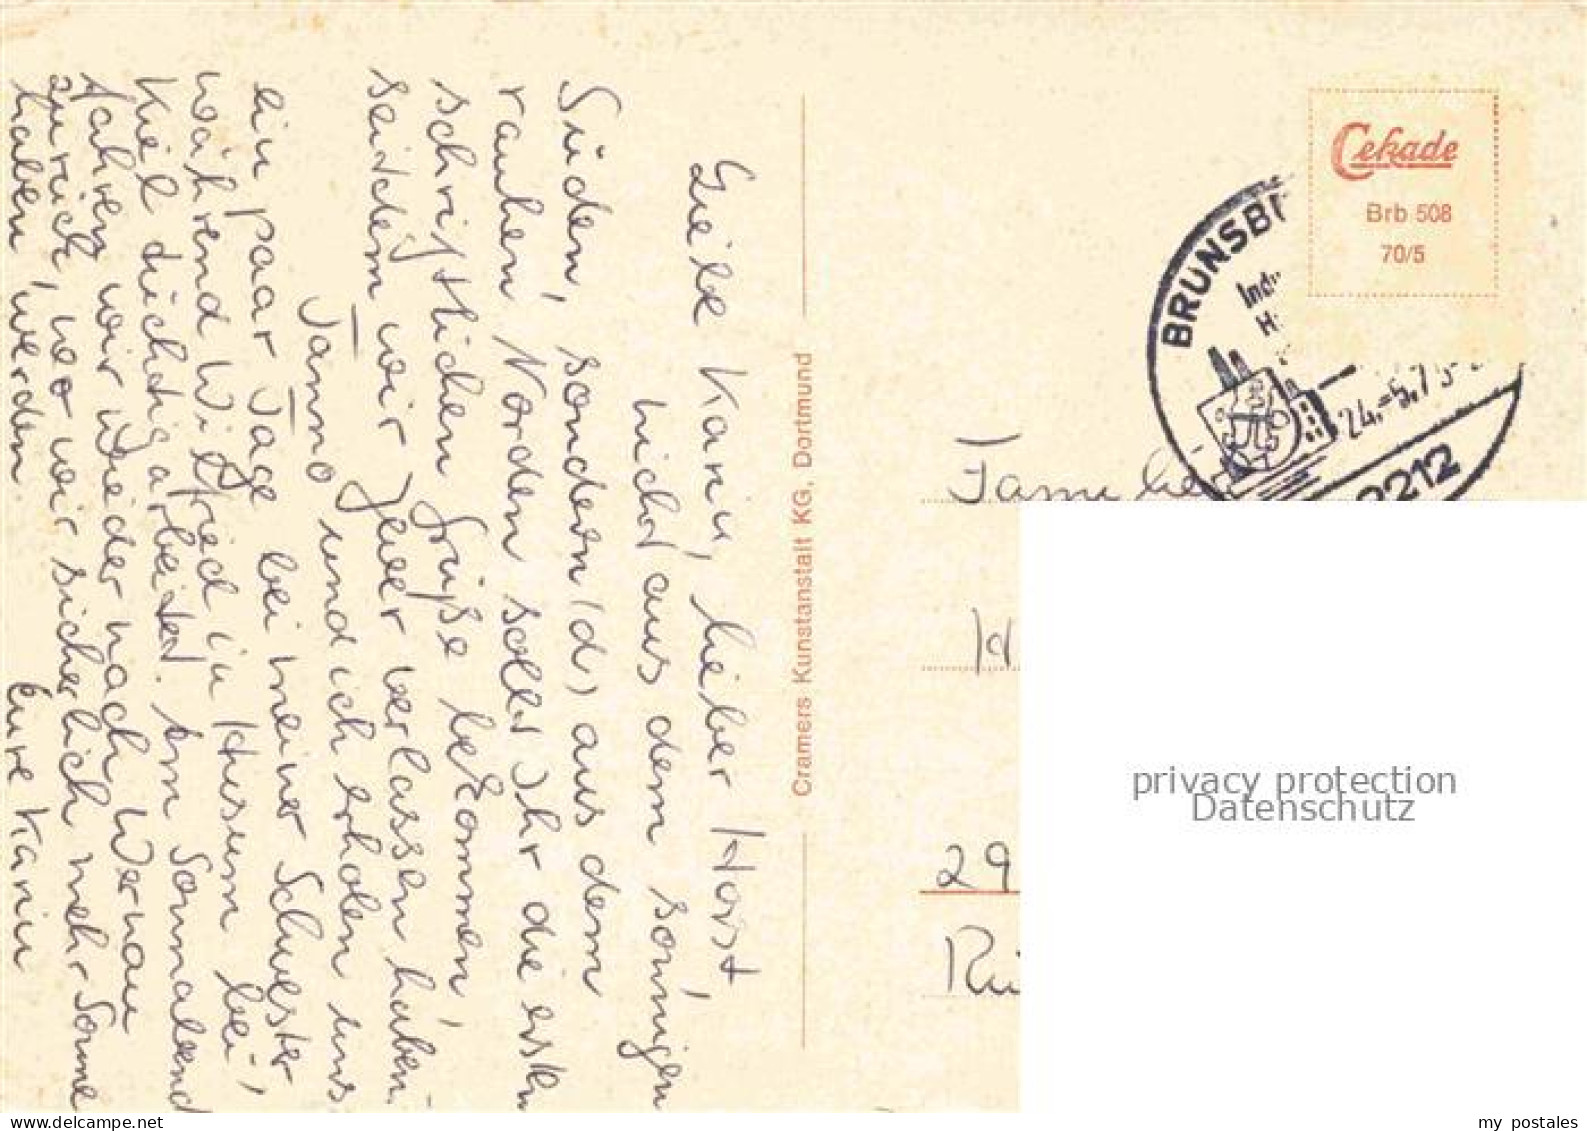 Liebe Karin, lieber Horst,
nicht aus dem sonnigen
Süden, sondern (d) aus dem
rauhen Norden sollt Ihr die ersten
schriftlichen Grüße bekommen,
seitdem wir Euer verlassen haben.
Tanno und ich erholen uns
ein paar Tage bei meiner Schwester
während Wilfried in Husum bei
Kiel tüchtig arbeitet. Am Sonnabend
fahren wir wieder nach Wernau
zurück, wo wir sicherlich mehr Sonne
haben werden.
Eure Karin
Cramers Kunstanstalt KG, Dortmund
Cekade
Brb 508
70/5
BRUNSB
24.-5.7
2212
Familie
H
29
Rü
privacy protection
Datenschutz
my postales